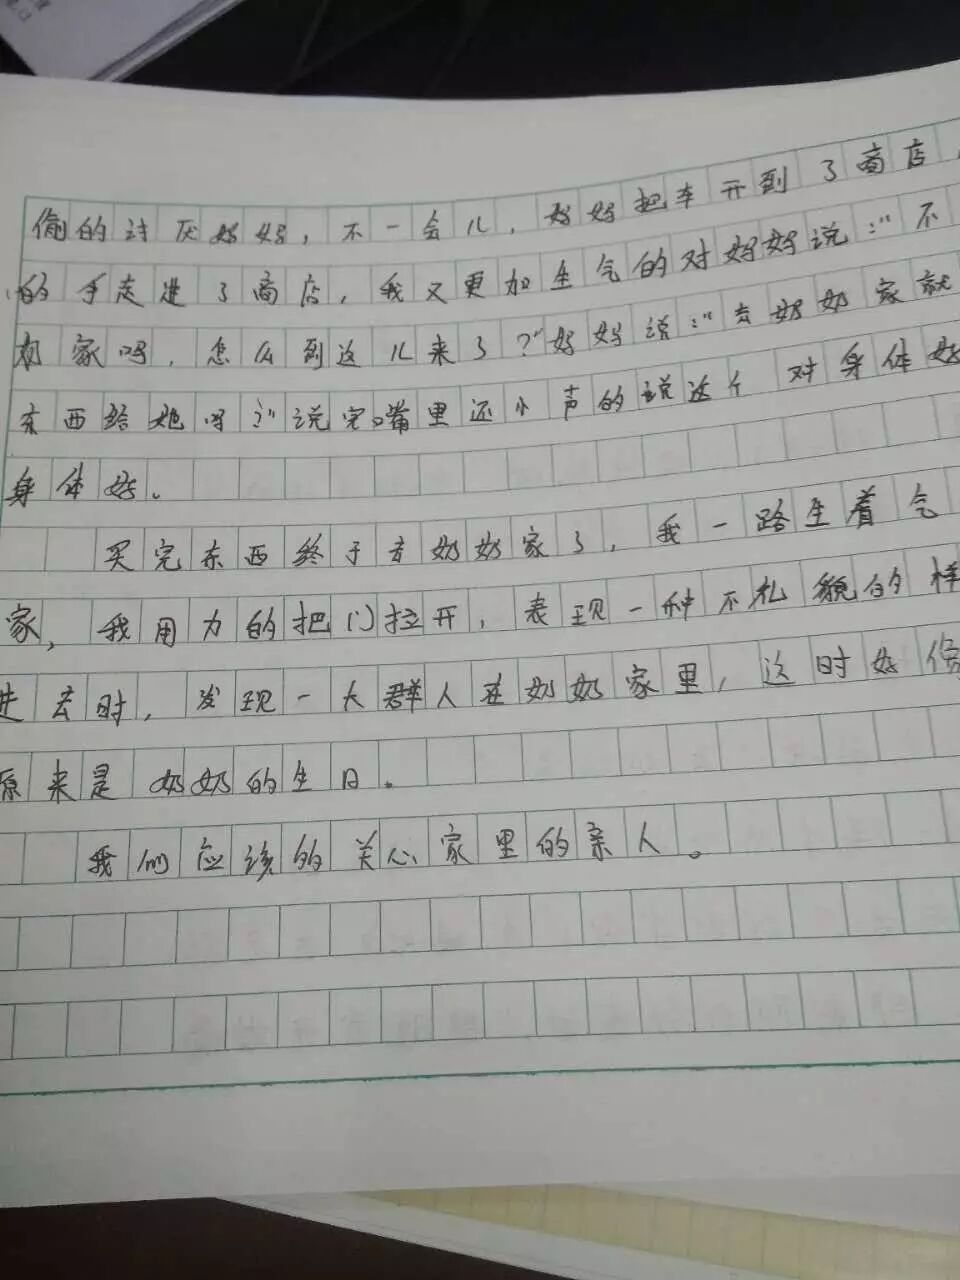 偷的讨厌妈妈，不一会儿，妈妈把车开到了商店，
的手走进了商店，我又更加生气的对妈妈说：“不
奶家吗，怎么到这儿来了？”妈妈说：“去奶奶家就
东西给她吗？”说完嘴里还小声的说这个对身体好
身体好。
买完东西终于去奶奶家了，我一路生着气
家，我用力的把门拉开，表现一种不礼貌的样
进去时，发现一大群人在奶奶家里，这时好像
原来是奶奶的生日。
我们应该的关心家里的亲人。